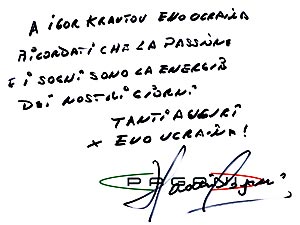 A IGOR KRAVTOV EVO UCRAINA
RICORDATI CHE LA PASSIONE
E I SOGNI SONO LA ENERGIA
DEI NOSTRI GIORNI
TANTI AUGURI
X EVO UCRAINA!